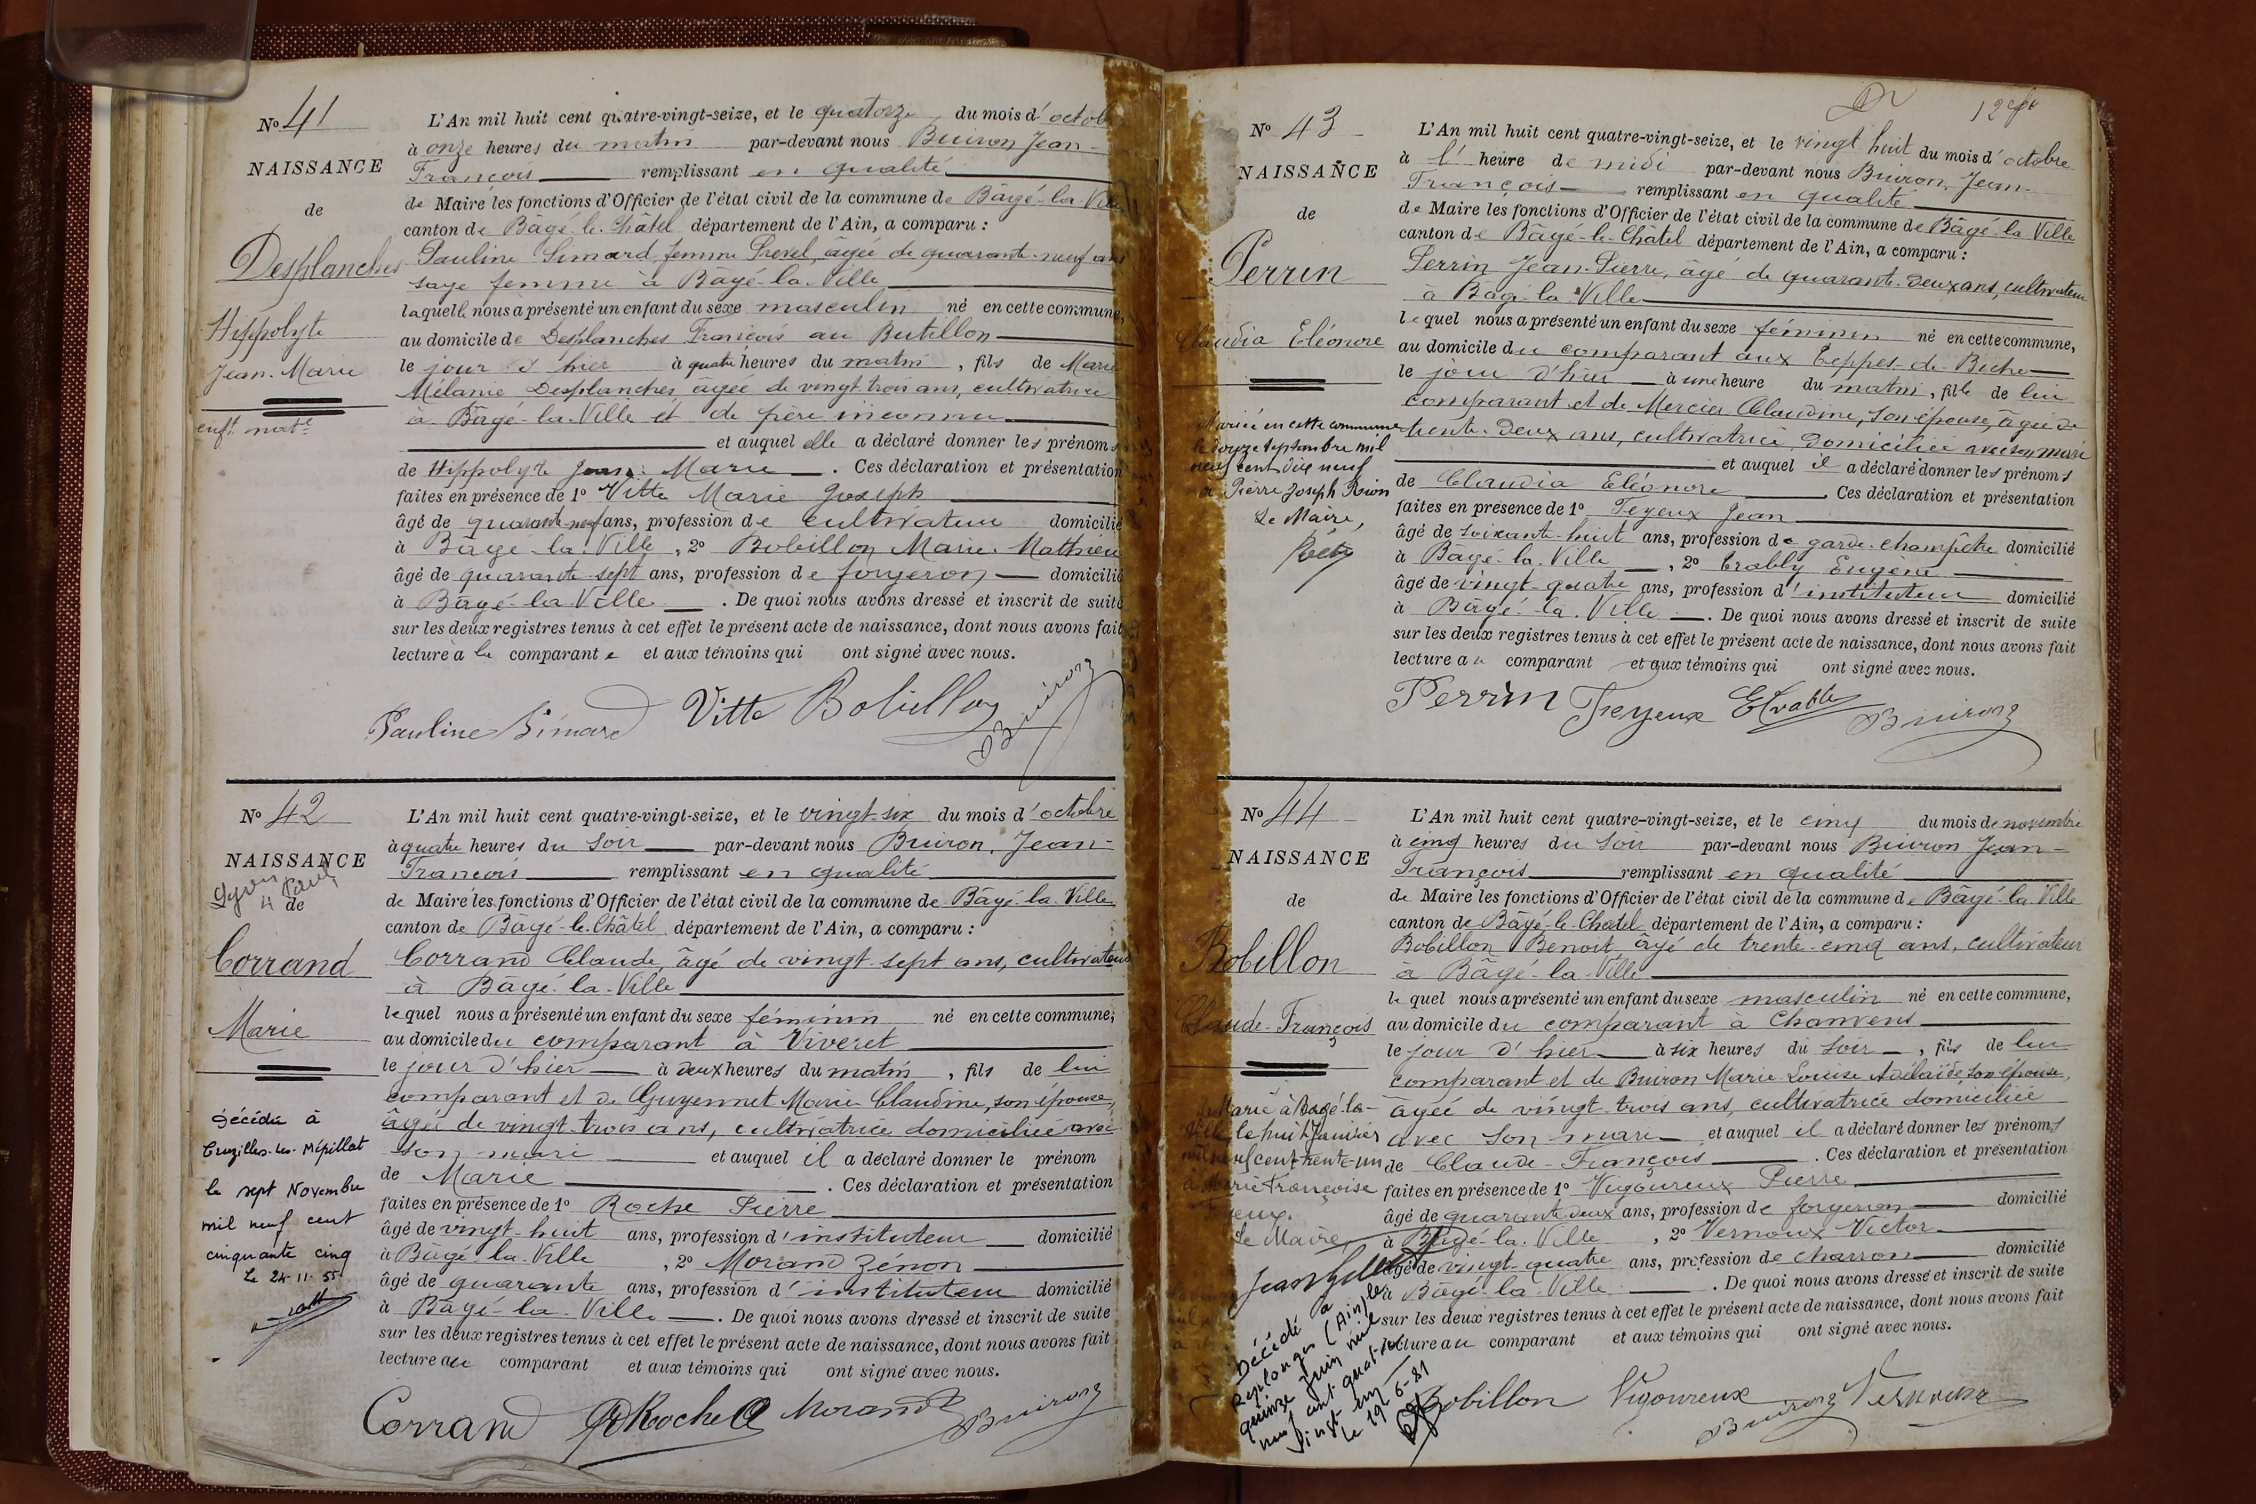 No 41
NAISSANCE
de
Desplanches
Hippolyte
Jean-Marie
enft. natel
L'An mil huit cent quatre-vingt-seize, et le quatorze du mois d'octob
à onze heures du matin par-devant nous Buiron Jean-
François remplissant en qualité
de Maire les fonctions d'Officier de l'état civil de la commune de Bâgé-la-Ville
canton de Bâgé-le-Châtel département de l'Ain, a comparu :
Pauline Simard femme Prevel, âgée de quarante-neuf ans
sage femme à Bâgé-la-Ville
laquelle nous a présenté un enfant du sexe masculin né en cette commune,
au domicile de Desplanches François au Butillon
le jour d'hier à quatre heures du matin, fils de Marie
Mélanie Desplanches âgée de vingt trois ans, cultivatrice
à Bâgé-la-Ville et de père inconnu
et auquel elle a déclaré donner les prénoms
de Hippolyte Jean-Marie. Ces déclaration et présentation
faites en présence de 1o Vitte Marie Joseph
âgé de quarante-neuf ans, profession de cultivateur domicilié
à Bâgé-la-Ville, 2o Bobillon Marie-Mathieu
âgé de quarante-sept ans, profession de forgeron domicilié
à Bâgé-la-Ville. De quoi nous avons dressé et inscrit de suite
sur les deux registres tenus à cet effet le présent acte de naissance, dont nous avons fait
lecture a la comparante et aux témoins qui ont signé avec nous.
Pauline Simard Vitte Bobillon Buiron
No 42
NAISSANCE
de
Corrand
Marie
Décédée à
Cruzilles-les-Mépillat
le sept Novembre
mil neuf cent
cinquante cinq
Le 24-11-55
L'An mil huit cent quatre-vingt-seize, et le vingt-six du mois d'octobre
à quatre heures du soir par-devant nous Buiron, Jean-
François remplissant en qualité
de Maire les fonctions d'Officier de l'état civil de la commune de Bâgé-la-Ville
canton de Bâgé-le-Châtel département de l'Ain, a comparu :
Corrand Claude, âgé de vingt-sept ans, cultivateur
à Bâgé-la-Ville
lequel nous a présenté un enfant du sexe féminin né en cette commune,
au domicile du comparant à Viveret
le jour d'hier à deux heures du matin, fils de lui
comparant et de Guyennet Marie Claudine, son épouse,
âgée de vingt-trois ans, cultivatrice domiciliée avec
son mari et auquel il a déclaré donner le prénom
de Marie. Ces déclaration et présentation
faites en présence de 1o Roche Pierre
âgé de vingt-huit ans, profession d'instituteur domicilié
à Bâgé-la-Ville, 2o Morand Zénon
âgé de quarante ans, profession d'instituteur domicilié
à Bâgé-la-Ville. De quoi nous avons dressé et inscrit de suite
sur les deux registres tenus à cet effet le présent acte de naissance, dont nous avons fait
lecture au comparant et aux témoins qui ont signé avec nous.
Corrand Roche Morand Buiron
No 43
NAISSANCE
de
Perrin
Claudia Eléonore
Mariée en cette commune
le douze septembre mil
neuf cent dix neuf
à Pierre Joseph Rion
Le Maire,
L'An mil huit cent quatre-vingt-seize, et le vingt huit du mois d'octobre
à l'heure de midi par-devant nous Buiron, Jean-
François remplissant en qualité
de Maire les fonctions d'Officier de l'état civil de la commune de Bâgé-la-Ville
canton de Bâgé-le-Châtel département de l'Ain, a comparu :
Perrin Jean-Pierre, âgé de quarante-deux ans, cultivateur
à Bâgé-la-Ville
lequel nous a présenté un enfant du sexe féminin né en cette commune,
au domicile du comparant aux Teppes-de-Biche
le jour d'hier à une heure du matin, fille de lui
comparant et de Mercier Claudine, son épouse, âgée de
trente-deux ans, cultivatrice domiciliée avec son mari
et auquel il a déclaré donner les prénoms
de Claudia Eléonore. Ces déclaration et présentation
faites en présence de 1o Feyeux Jean
âgé de soixante-huit ans, profession de garde-champêtre domicilié
à Bâgé-la-Ville, 2o Crably Eugène
âgé de vingt-quatre ans, profession d'instituteur domicilié
à Bâgé-la-Ville. De quoi nous avons dressé et inscrit de suite
sur les deux registres tenus à cet effet le présent acte de naissance, dont nous avons fait
lecture au comparant et aux témoins qui ont signé avec nous.
Perrin Feyeux Buiron
No 44
NAISSANCE
de
Bobillon
Claude-François
Marié à Bagé-la-
Ville le huit Janvier
mil neuf cent trente-un
à Marie Françoise
Le Maire,
Décédé à
Replonges (Ain) le
quinze Juin mil
neuf cent quatre
vingt-un
le 19-6-81
L'An mil huit cent quatre-vingt-seize, et le cinq du mois de novembre
à cinq heures du soir par-devant nous Buiron Jean-
François remplissant en qualité
de Maire les fonctions d'Officier de l'état civil de la commune de Bâgé-la-Ville
canton de Bâgé-le-Chatel département de l'Ain, a comparu :
Bobillon Benoit, âgé de trente-cinq ans, cultivateur
à Bâgé-la-Ville
lequel nous a présenté un enfant du sexe masculin né en cette commune,
au domicile du comparant à Chanvens
le jour d'hier à six heures du soir, fils de lui
comparant et de Buiron Marie-Louise Adélaïde, son épouse,
âgée de vingt-trois ans, cultivatrice domiciliée
avec son mari et auquel il a déclaré donner les prénoms
de Claude-François. Ces déclaration et présentation
faites en présence de 1o Vigoureux Pierre
âgé de quarante-deux ans, profession de forgeron domicilié
à Bâgé-la-Ville, 2o Vernoux Victor
âgé de vingt-quatre ans, profession de charron domicilié
à Bâgé-la-Ville. De quoi nous avons dressé et inscrit de suite
sur les deux registres tenus à cet effet le présent acte de naissance, dont nous avons fait
lecture au comparant et aux témoins qui ont signé avec nous.
Bobillon Vigoureux Buiron Vernoux